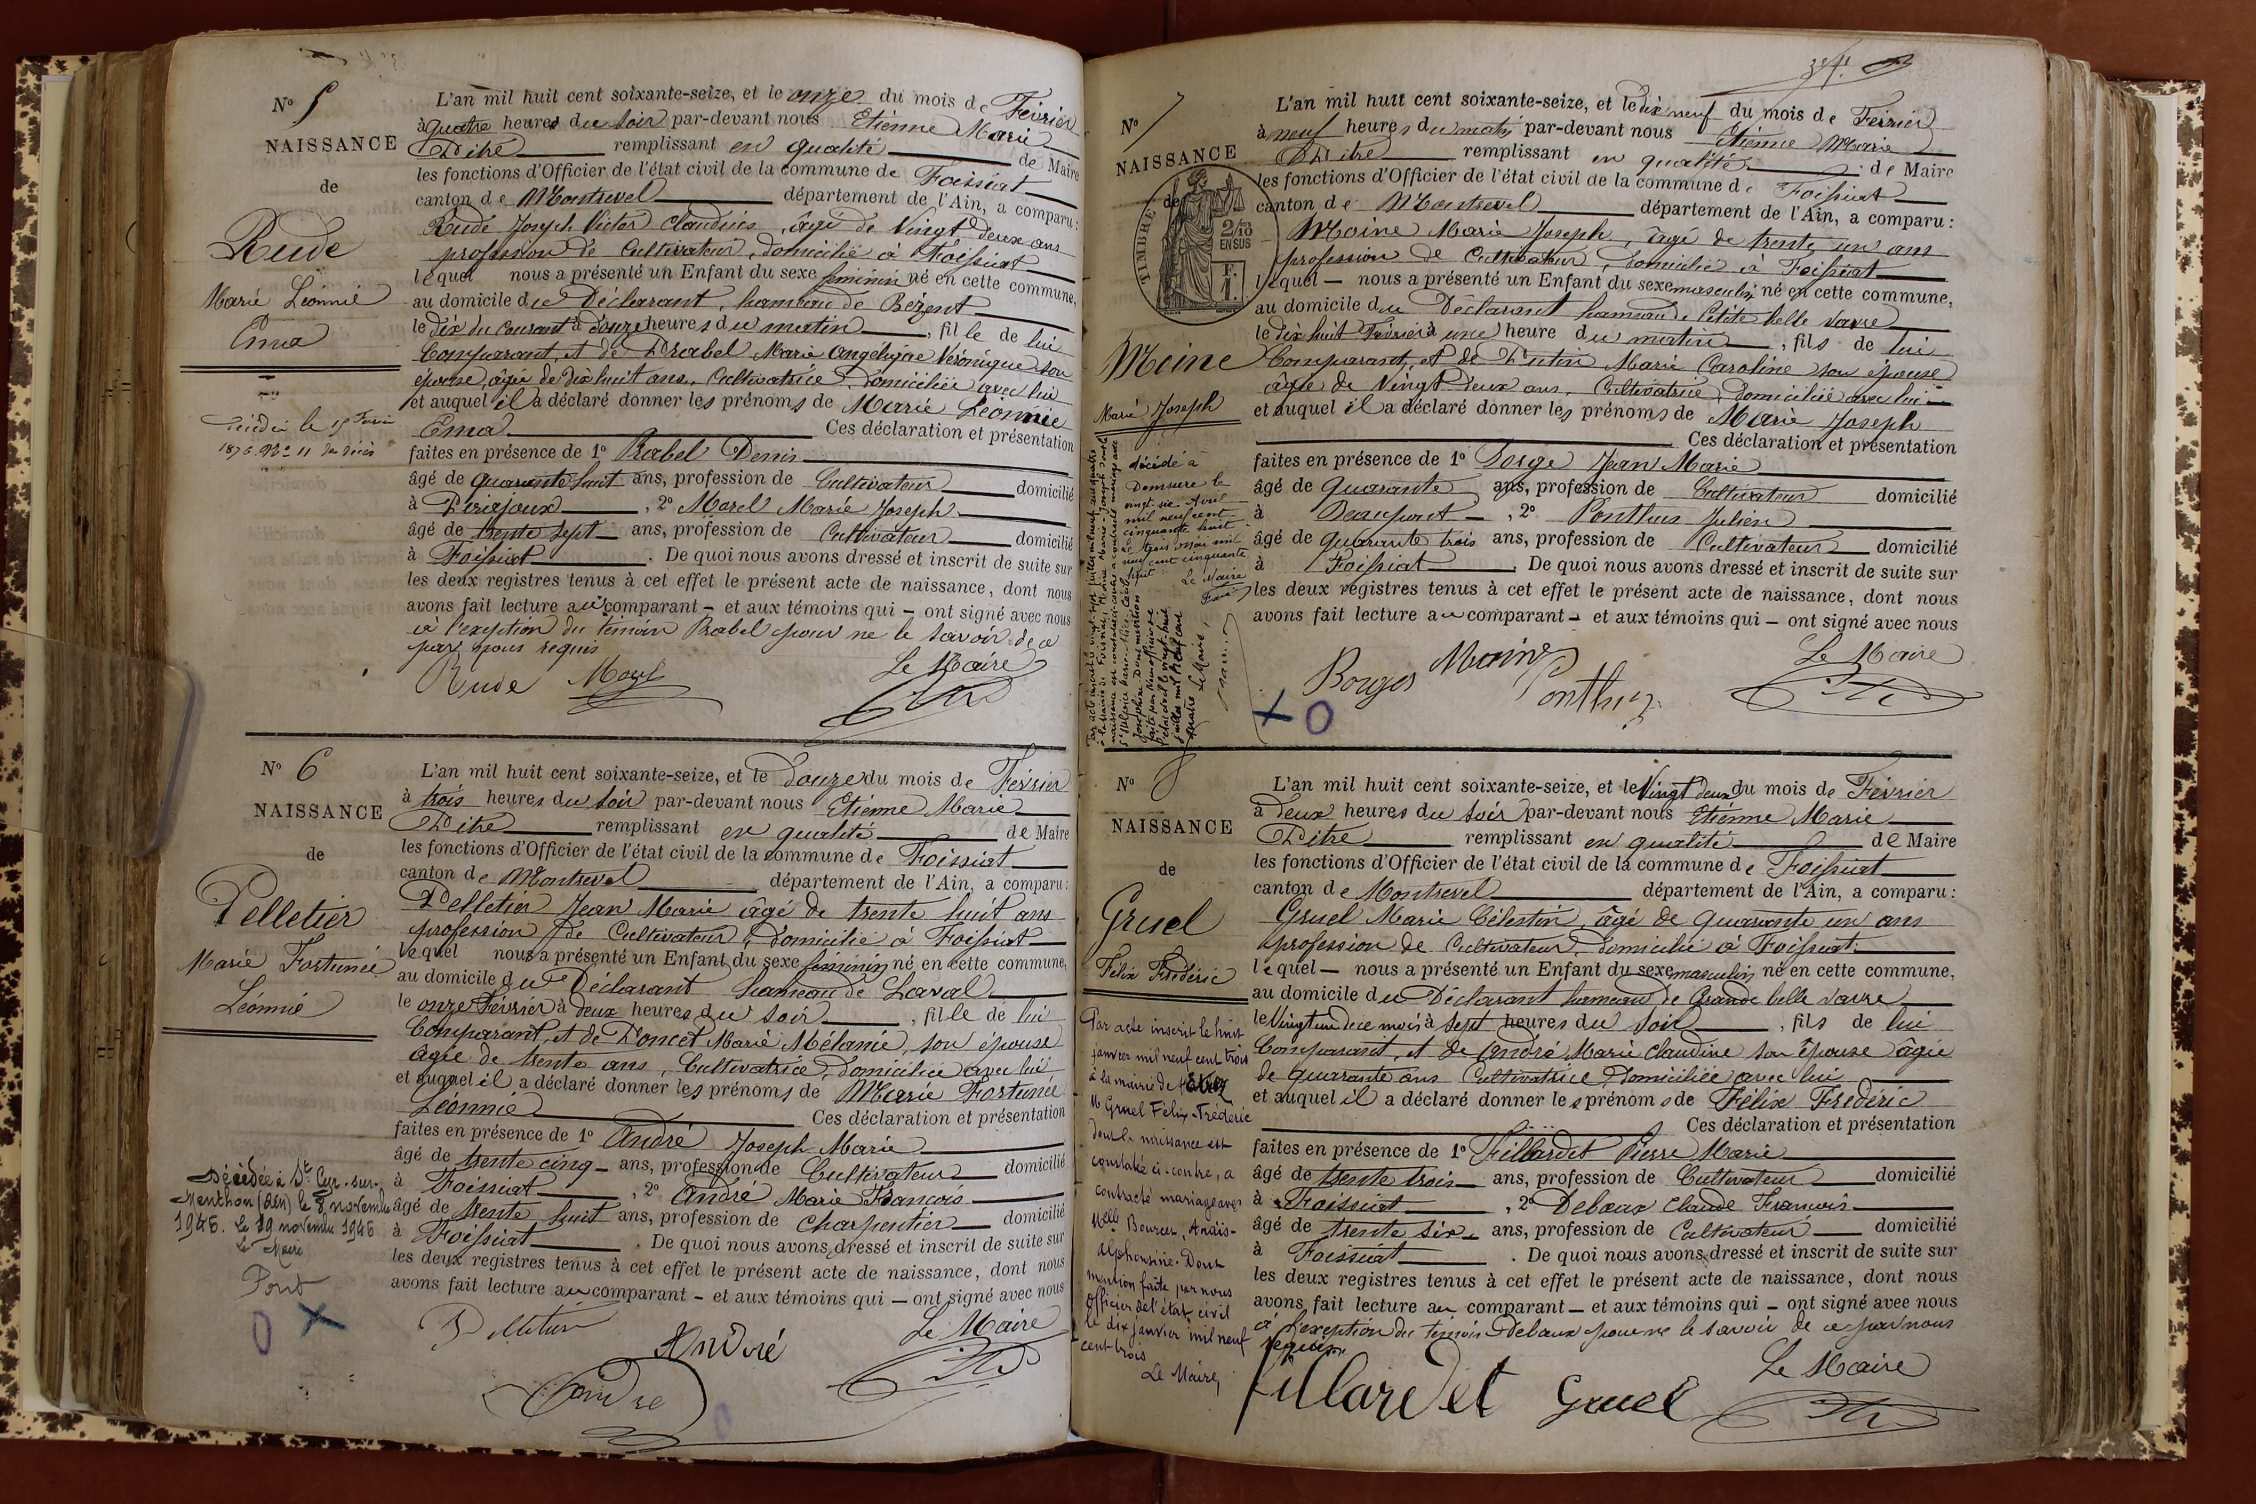 N° 5
NAISSANCE
de
Rude
Marie Léonnie
Ema
Décédée le 15 Février
1876. N° 11 des décès
L'an mil huit cent soixante-seize, et le onze du mois de Février
à quatre heures du soir par-devant nous Etienne Marie
Pitre remplissant en qualité de Maire
les fonctions d'Officier de l'état civil de la commune de Foissiat
canton de Montrevel département de l'Ain, a comparu:
Rude Joseph Victor Claudius, âgé de Vingt deux ans
profession de Cultivateur, domicilié à Foissiat
lequel nous a présenté un Enfant du sexe féminin né en cette commune,
au domicile du Déclarant, hameau de Bezent
le dix du courant à douze heures du matin, fille de lui
Comparant, et de Prabel Marie Angélique Véronique son
épouse, âgée de dix huit ans, Cultivatrice, domiciliée avec lui
et auquel il a déclaré donner les prénoms de Marie Léonnie
Ema Ces déclaration et présentation
faites en présence de 1° Prabel Denis
âgé de quarante huit ans, profession de Cultivateur domicilié
à , 2° Morel Marie Joseph
âgé de trente sept ans, profession de Cultivateur domicilié
à Foissiat . De quoi nous avons dressé et inscrit de suite sur
les deux registres tenus à cet effet le présent acte de naissance, dont nous
avons fait lecture au comparant – et aux témoins qui – ont signé avec nous
à l'exeption du témoin Prabel pour ne le savoir de ce
par nous requis
Le Maire
Rude Morel
N° 6
NAISSANCE
de
Pelletier
Marie Fortunée
Léonnie
Décédée à St Cyr-sur-
Menthon (Ain) le 8 novembre
1946. Le 19 novembre 1946
Le Maire
Pont
O X
L'an mil huit cent soixante-seize, et le Douze du mois de Février
à trois heures du soir par-devant nous Etienne Marie
Pitre remplissant en qualité de Maire
les fonctions d'Officier de l'état civil de la commune de Foissiat
canton de Montrevel département de l'Ain, a comparu:
Pelletier Jean Marie âgé de trente huit ans
profession de Cultivateur, domicilié à Foissiat
lequel nous a présenté un Enfant du sexe féminin né en cette commune,
au domicile du Déclarant hameau de Laval
le onze Février à deux heures du soir, fille de lui
Comparant, et de Poncet Marie Mélanie, son épouse
âgée de trente ans, Cultivatrice, domiciliée avec lui
et auquel il a déclaré donner les prénoms de Marie Fortunée
Léonnie Ces déclaration et présentation
faites en présence de 1° André Joseph Marie
âgé de trente cinq – ans, profession de Cultivateur domicilié
à Foissiat , 2° André Marie François
âgé de trente huit ans, profession de Charpentier domicilié
à Foissiat . De quoi nous avons dressé et inscrit de suite sur
les deux registres tenus à cet effet le présent acte de naissance, dont nous
avons fait lecture au comparant – et aux témoins qui – ont signé avec nous
Le Maire
Pelletier
André
André
N° 7
NAISSANCE
de
TIMBRE
2/10
EN SUS
F.
1
Moine
Marie Joseph
décédé à
Domsure le
vingt six Avril
mil neuf cent
cinquante huit
Le trois mai mil
neuf cent cinquante
huit
Le Maire
L'an mil huit cent soixante-seize, et le dix neuf du mois de Février
à neuf heures du matin par-devant nous Etienne Marie
Pitre remplissant en qualité de Maire
les fonctions d'Officier de l'état civil de la commune de Foissiat
canton de Montrevel département de l'Ain, a comparu:
Moine Marie Joseph, âgé de trente un ans
profession de Cultivateur, domicilié à Foissiat
lequel – nous a présenté un Enfant du sexe masculin né en cette commune,
au domicile du Déclarant hameau de Petite belle vavre
le dix huit Février à une heure du matin, fils de lui
Comparant, et de Putin Marie Caroline son épouse
âgée de Vingt Deux ans, Cultivatrice, domiciliée avec lui
et auquel il a déclaré donner les prénoms de Marie Joseph
Ces déclaration et présentation
faites en présence de 1° Jean Marie
âgé de Quarante ans, profession de Cultivateur domicilié
à Beaupont – , 2° Ponthus Julien
âgé de quarante trois ans, profession de Cultivateur domicilié
à Foissiat . De quoi nous avons dressé et inscrit de suite sur
les deux registres tenus à cet effet le présent acte de naissance, dont nous
avons fait lecture au comparant – et aux témoins qui – ont signé avec nous
Le Maire
Moine
Ponthus
X O
N° 8
NAISSANCE
de
Gruel
Félix Frédéric
Par acte inscrit le huit
janvier mil neuf cent trois
à la mairie de
M Gruel Félix-Frédéric
dont la naissance est
constatée ci-contre, a
contracté mariage avec
Melle Bourcen, Anaïs-
Alphonsine. Dont
mention faite par nous
Officier de l'état civil
le dix janvier mil neuf
cent trois
Le Maire,
L'an mil huit cent soixante-seize, et le Vingt deux du mois de Février
à Deux heures du soir par-devant nous Etienne Marie
Pitre remplissant en qualité de Maire
les fonctions d'Officier de l'état civil de la commune de Foissiat
canton de Montrevel département de l'Ain, a comparu:
Gruel Marie Célestin, âgé de quarante un ans
profession de Cultivateur, domicilié à Foissiat
lequel – nous a présenté un Enfant du sexe masculin né en cette commune,
au domicile du Déclarant hameau de Grande belle vavre
le Vingt un de ce mois à sept heures du soir, fils de lui
Comparant, et de André Marie Claudine son épouse âgée
de quarante ans Cultivatrice, domiciliée avec lui
et auquel il a déclaré donner les prénoms de Félix Frédéric
Ces déclaration et présentation
faites en présence de 1° Fillardet Pierre Marie
âgé de trente trois ans, profession de Cultivateur domicilié
à Foissiat , 2° Debaux Claude François
âgé de trente six – ans, profession de Cultivateur domicilié
à Foissiat . De quoi nous avons dressé et inscrit de suite sur
les deux registres tenus à cet effet le présent acte de naissance, dont nous
avons fait lecture au comparant – et aux témoins qui – ont signé avec nous
à l'exeption du témoin Debaux pour ne le savoir de ce par nous
requis
Le Maire
Fillardet Gruel